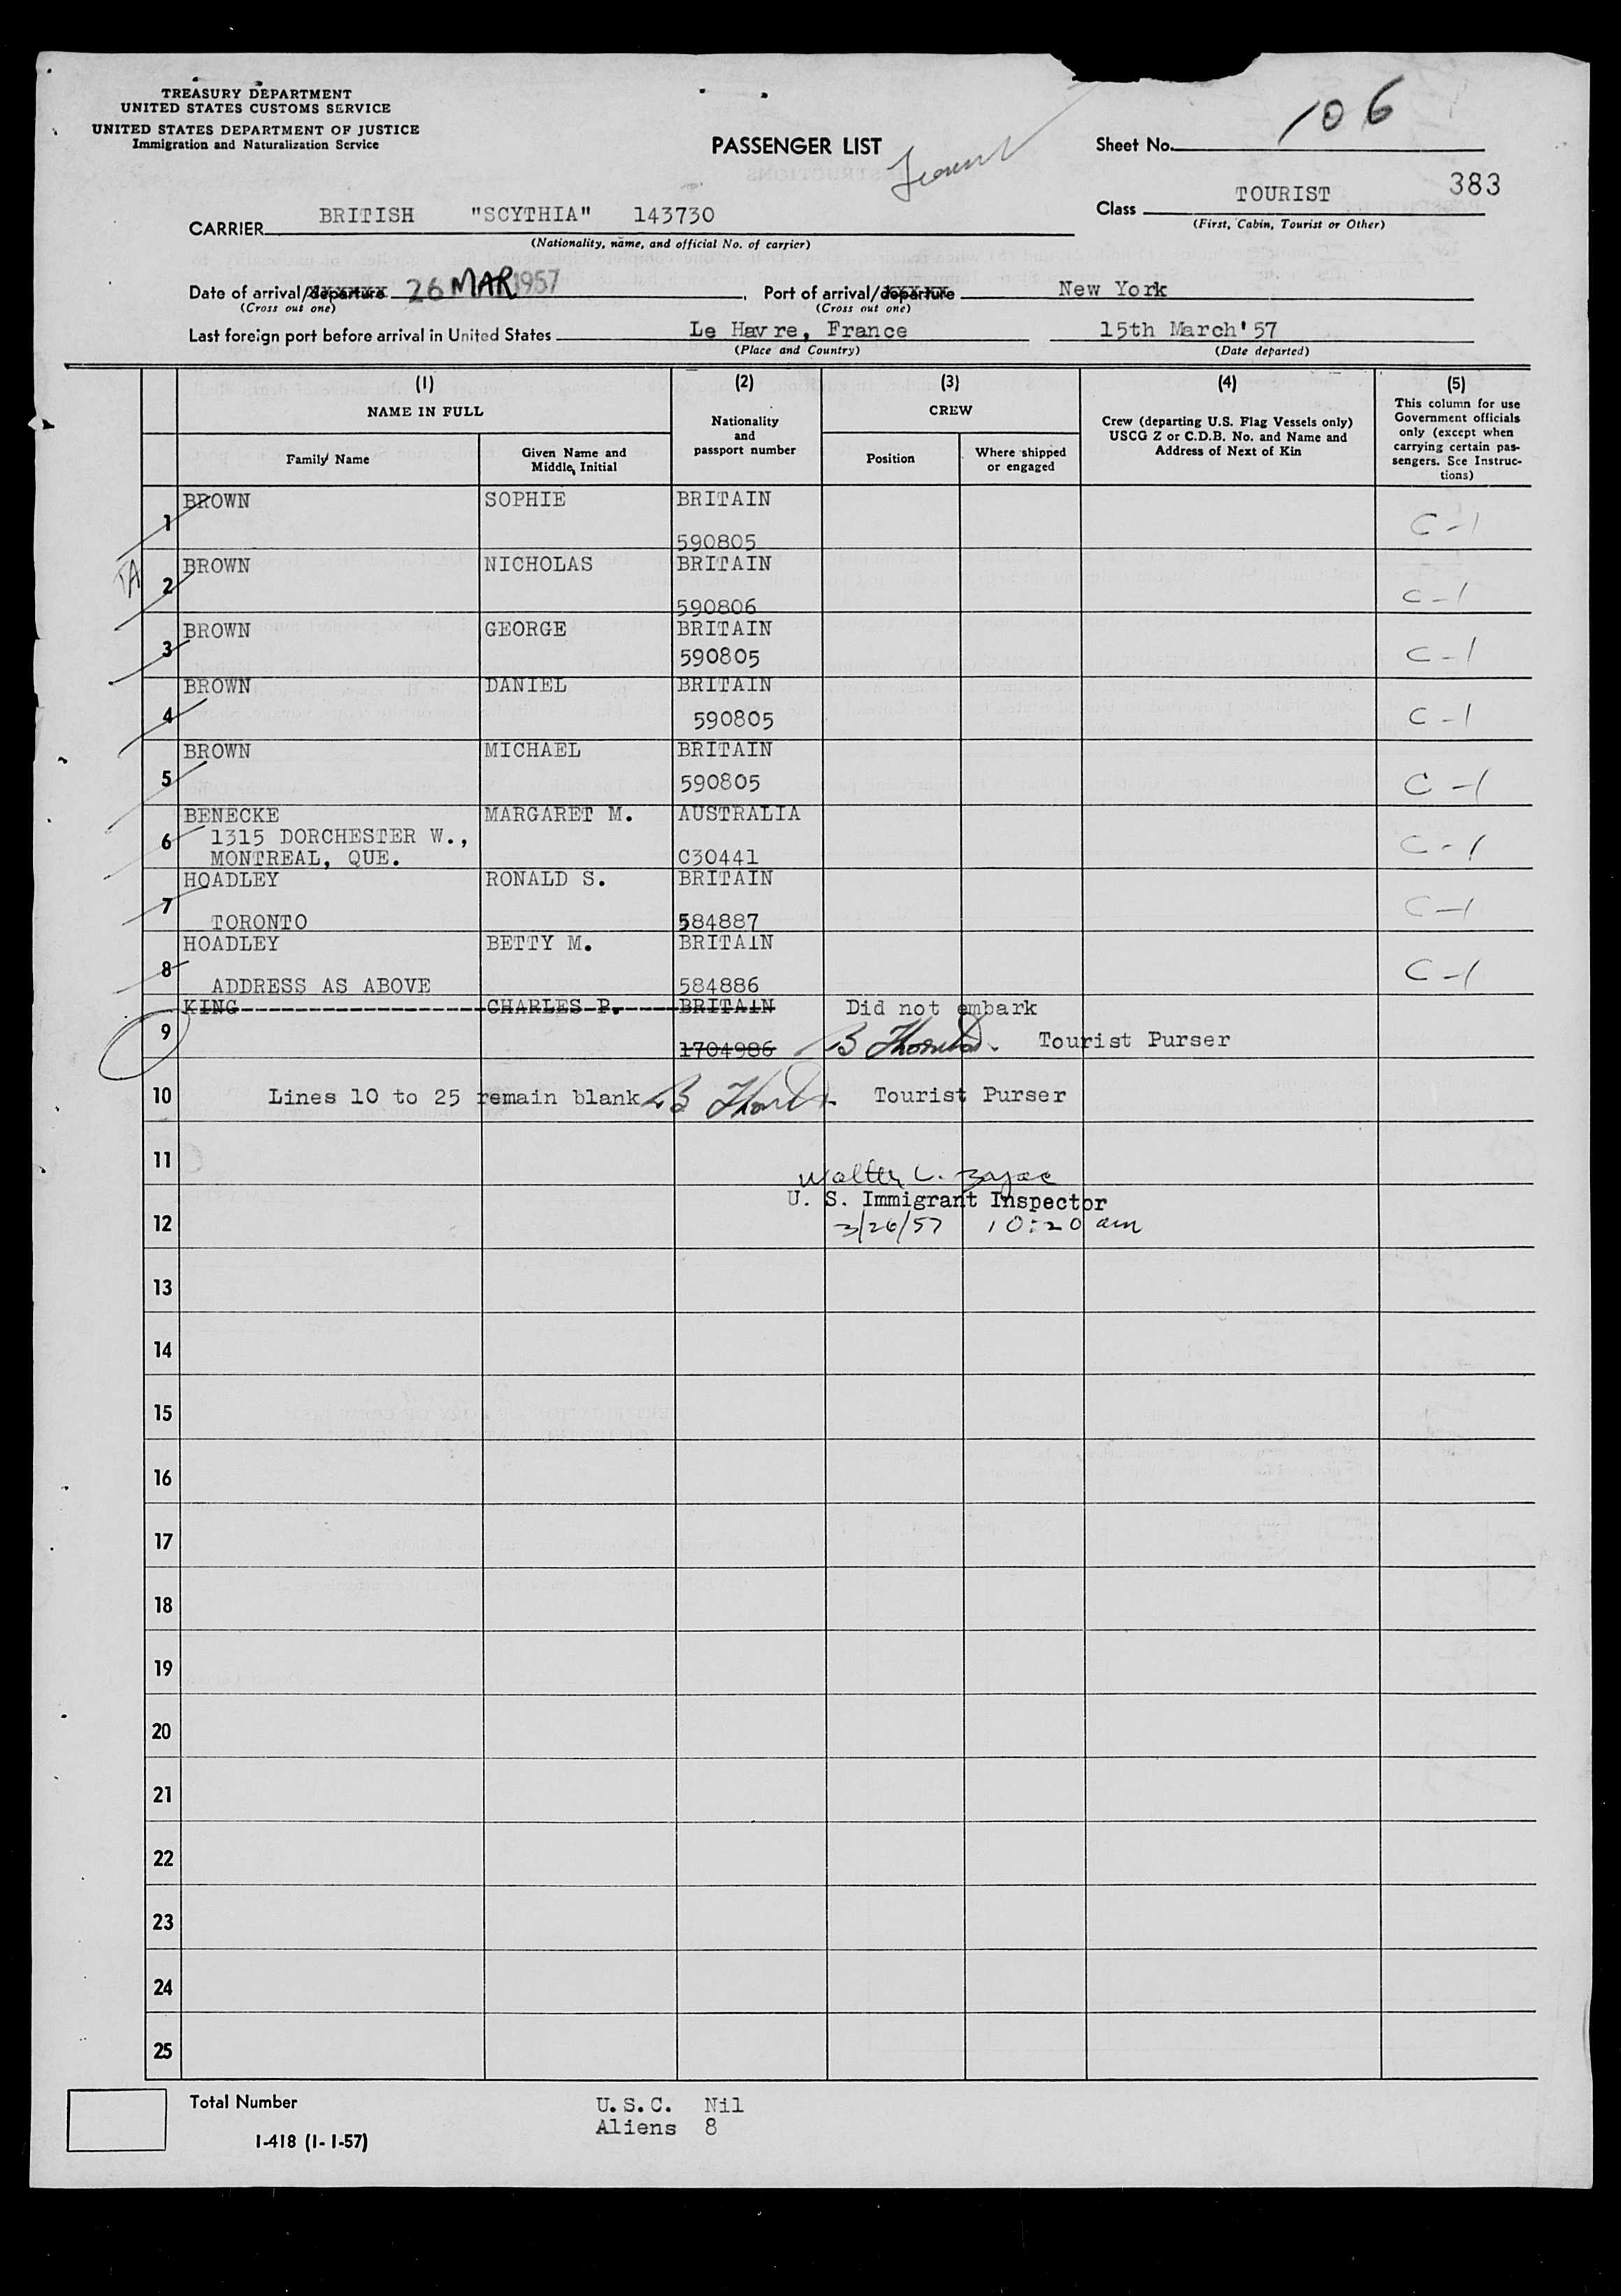 TREASURY DEPARTMENT
UNITED STATES CUSTOMS SERVICE
UNITED STATES DEPARTMENT OF JUSTICE
Immigration and Naturalization Service
PASSENGER LIST
Sheet No. 106
383
Class TOURIST
(First, Cabin, Tourist or Other)
CARRIER BRITISH "SCYTHIA" 143730
(Nationality, name, and official No. of carrier)
Date of arrival/departure 26 MAR 1957, Port of arrival/departure New York
(Cross out one) (Cross out one)
Last foreign port before arrival in United States Le Havre, France 15th March'57
(Place and Country) (Date departed)
(1) (2) (3) (4) (5)
NAME IN FULL
Family Name
Given Name and Middle Initial
Nationality and passport number
CREW
Position
Where shipped or engaged
Crew (departing U.S. Flag Vessels only)
USCG Z or C.D.B. No. and Name and
Address of Next of Kin
This column for use
Government officials
only (except when
carrying certain pas-
sengers. See Instruc-
tions)
1 BROWN SOPHIE BRITAIN
590805 C-1
TA
2 BROWN NICHOLAS BRITAIN
590806 C-1
3 BROWN GEORGE BRITAIN
590805 C-1
4 BROWN DANIEL BRITAIN
590805 C-1
5 BROWN MICHAEL BRITAIN
590805 C-1
6 BENECKE MARGARET M. AUSTRALIA
1315 DORCHESTER W.,
MONTREAL, QUE. C30441 C-1
7 HOADLEY RONALD S. BRITAIN
TORONTO 584887 C-1
8 HOADLEY BETTY M. BRITAIN
ADDRESS AS ABOVE 584886 C-1
9 KING CHARLES P. BRITAIN Did not embark
1704986 Tourist Purser
10 Lines 10 to 25 remain blank Tourist Purser
11
Walter L. Zajac
U. S. Immigrant Inspector
12 3/26/57 10:20 am
13
14
15
16
17
18
19
20
21
22
23
24
25
Total Number U.S.C. Nil
Aliens 8
I-418 (1-1-57)